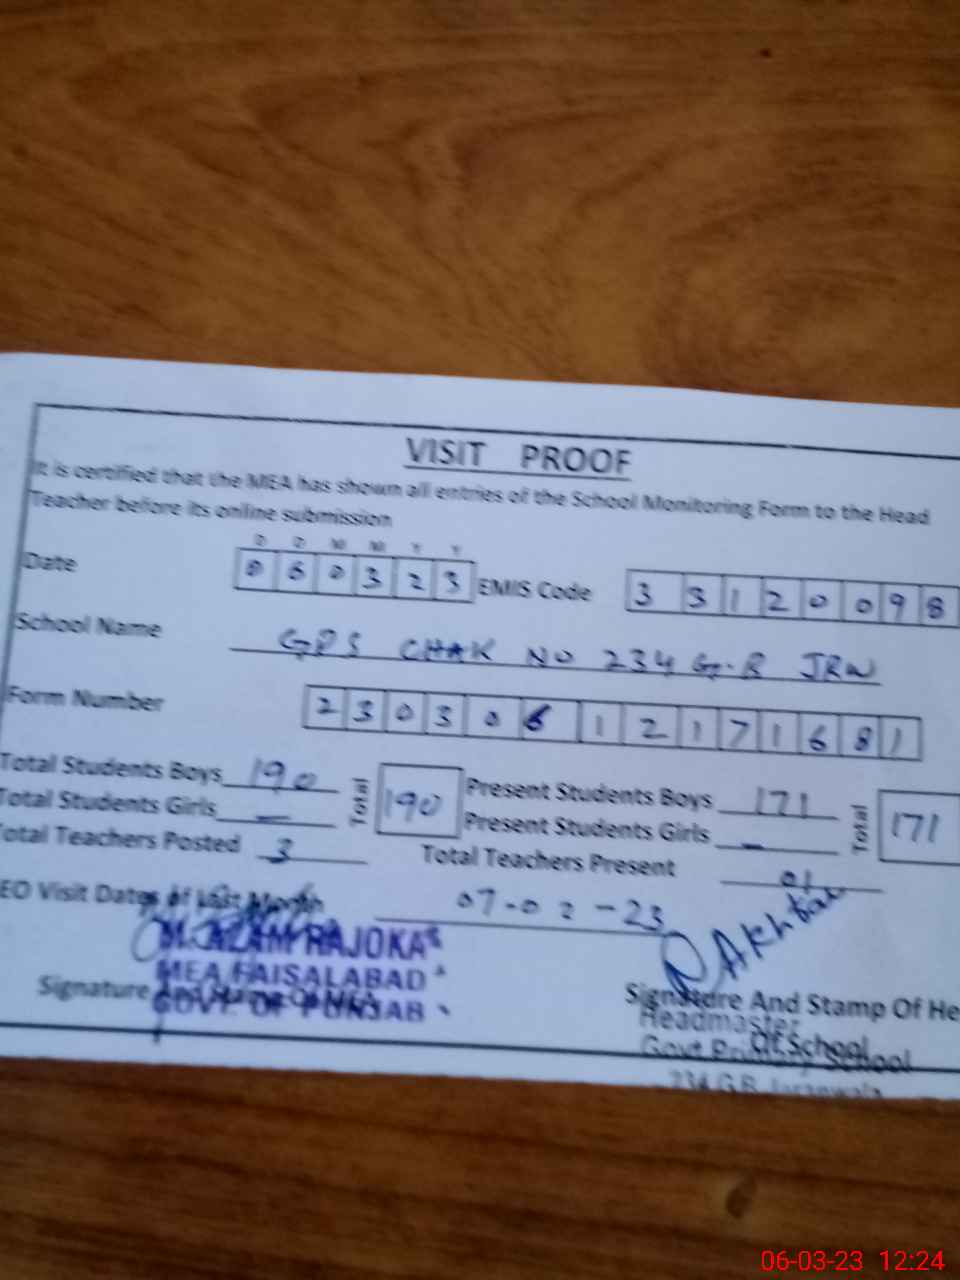 VISIT PROOF
It is certified that the MEA has shown all entries of the School Monitoring Form to the Head
Teacher before its online submission
D D M M Y Y
Date 0 6 0 3 2 3 EMIS Code 3 3 1 2 0 0 9 8
School Name GPS CHAK NO 234 G.B JRW
Form Number 2 3 0 3 0 6 1 2 1 7 1 6 8 1
Total Students Boys 190 Total 190 Present Students Boys 171 Total 171
Total Students Girls – Present Students Girls –
Total Teachers Posted 3 Total Teachers Present 01
EO Visit Dates of Last Month 07-02-23
M. AZAM RAJOKA
MEA FAISALABAD
GOVT. OF PUNJAB
Akhtar
Signature And Stamp Of He
Of School
Signature
Headmaster
Govt Primary School
234 G.B Jaranwala
06-03-23 12:24